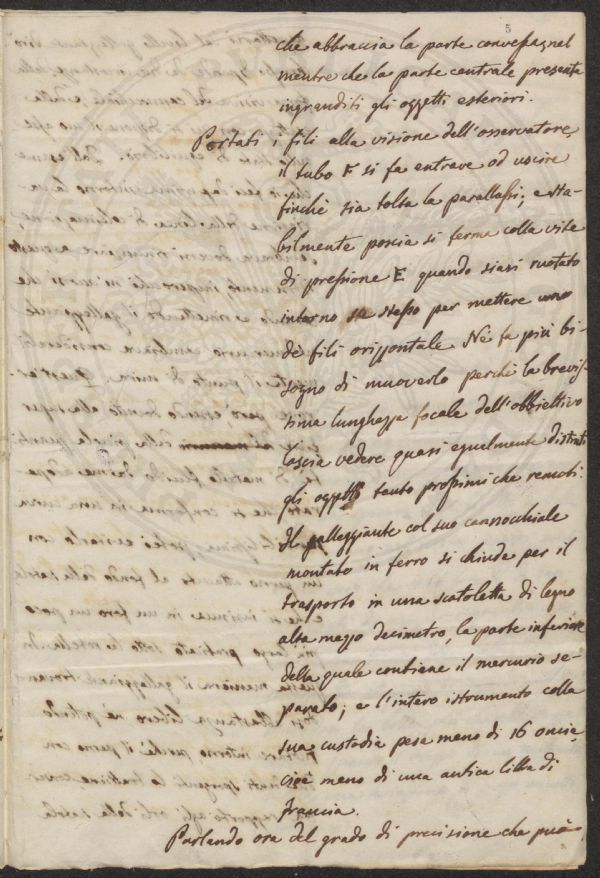 5
che abbraccia la parte convessa, nel
mentre che la parte centrale presenta
ingranditi gli oggetti esteriori.
Portati i fili alla visione dell'osservatore,
il tubo F si fa entrare od uscire
finchè sia tolta la parallassi, e sta-
bilmente poscia si ferma colla vite
di pressione E quando siasi ruotato
intorno se stesso per mettere uno
de' fili orizzontale. Nè fa più bi-
sogno di muoverlo perchè la brevis-
sima lunghezza focale dell'obbiettivo
lascia vedere quasi egualmente distinti
gli oggetti tanto prossimi che remoti.
Il galleggiante col suo cannocchiale
montato in ferro si chiude per il
trasporto in una scatoletta di legno
alta mezzo decimetro, la parte inferiore
della quale contiene il mercurio se-
parato; e l'intero istrumento colla
sua custodia pesa meno di 16 oncie,
cioè meno di una antica libbra di
Francia.
Parlando ora del grado di precisione che può